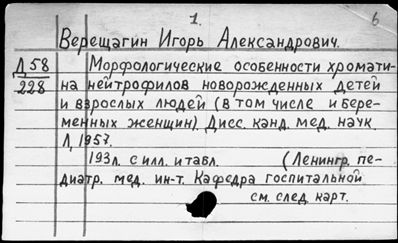 1. 6
Верещагин Игорь Александрович.
Д58 Морфологические особенности хромати-
228 на нейтрофилов новорожденных детей
и взрослых людей (в том числе и бере-
менных женщин). Дисс. канд. мед. наук.
Л, 1957.
193л. с илл. и табл. (Ленингр. пе-
диатр. мед. ин-т. Кафедра госпитальной
см. след. карт.